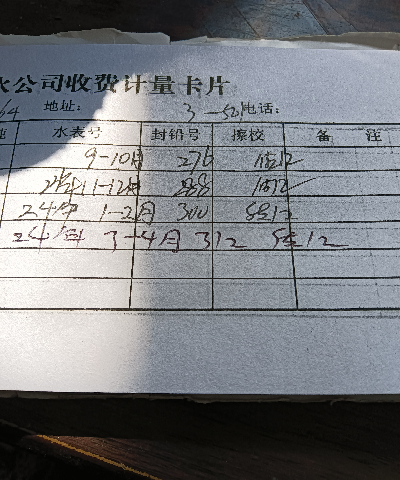 水公司收费计量卡片
64 地址: 3-521 电话:
水表号 封铅号 擦校 备 注
9-10月 276
11-12月 288
24年 1-2月 300 12
24年 3-4月 312 12